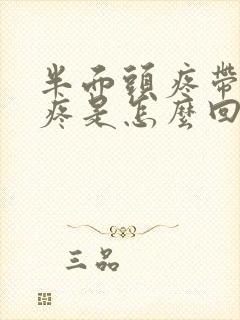 半而頭疼帶
疼是怎麼回
三品